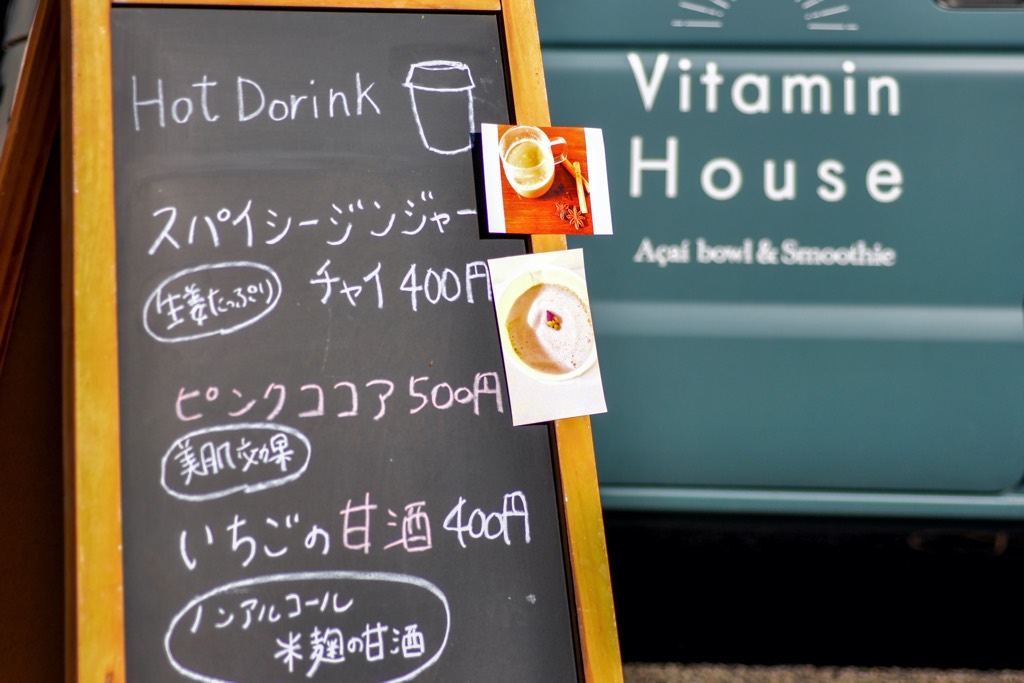 Hot Dorink
スパイシージンジャー
チャイ 400円
生姜たっぷり
ピンクココア 500円
美肌効果
いちごの甘酒 400円
ノンアルコール
米麹の甘酒
Vitamin
House
Açaí bowl & Smoothie